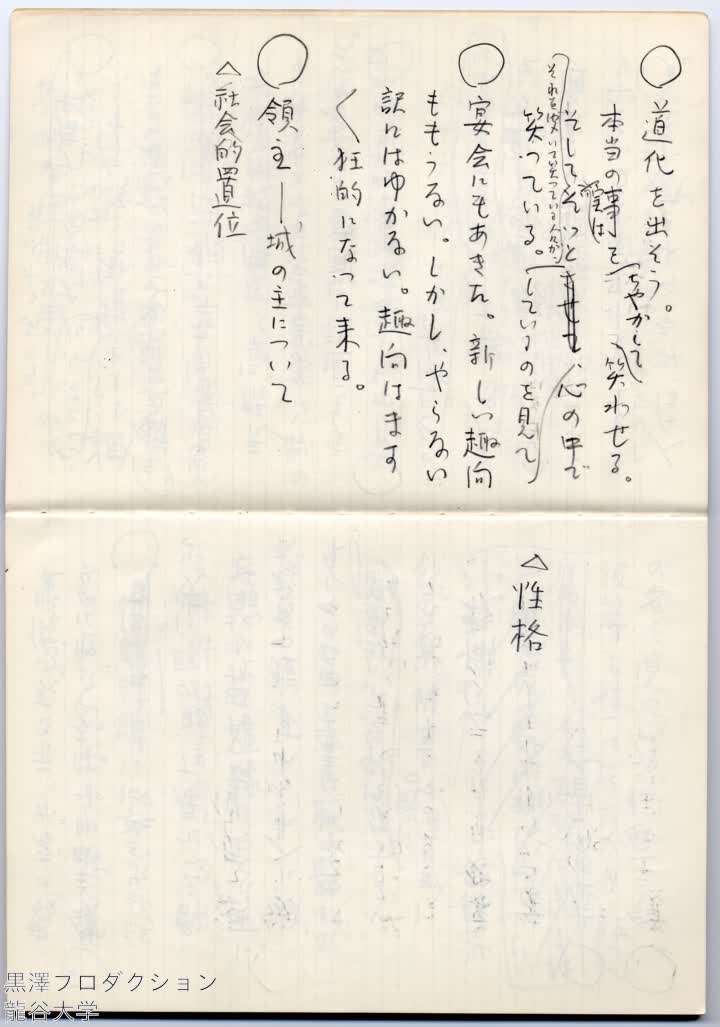 ○ 道化を出そう。
本当の事を、ちやかして、笑わせる。
実は
そしてそっと、心の中で
それをきいて笑っている人気が、
笑っている。しているのを見て
○ 宴会にもあきた。新しい趣向
ももうない。しかし、やらない
訳にはゆかない。趣向はます
く狂的になって来る。
○ 領主―城の主について
△社会的置位
△性格
黒澤プロダクション
龍谷大学